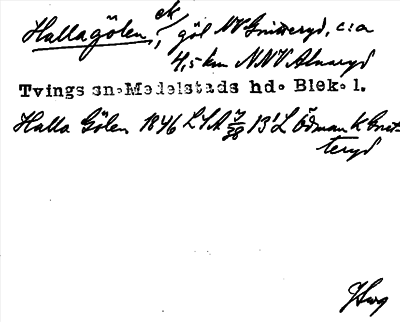 Hallagölen, ek
göl NV Gnitteryd, c:a
4,5 km NNV Alnaryd
Tvings sn. Medelstads hd. Blek. l.
Halla Gölen 1846 LSA 7/28 B'L Ödman K Gnet-
teryd